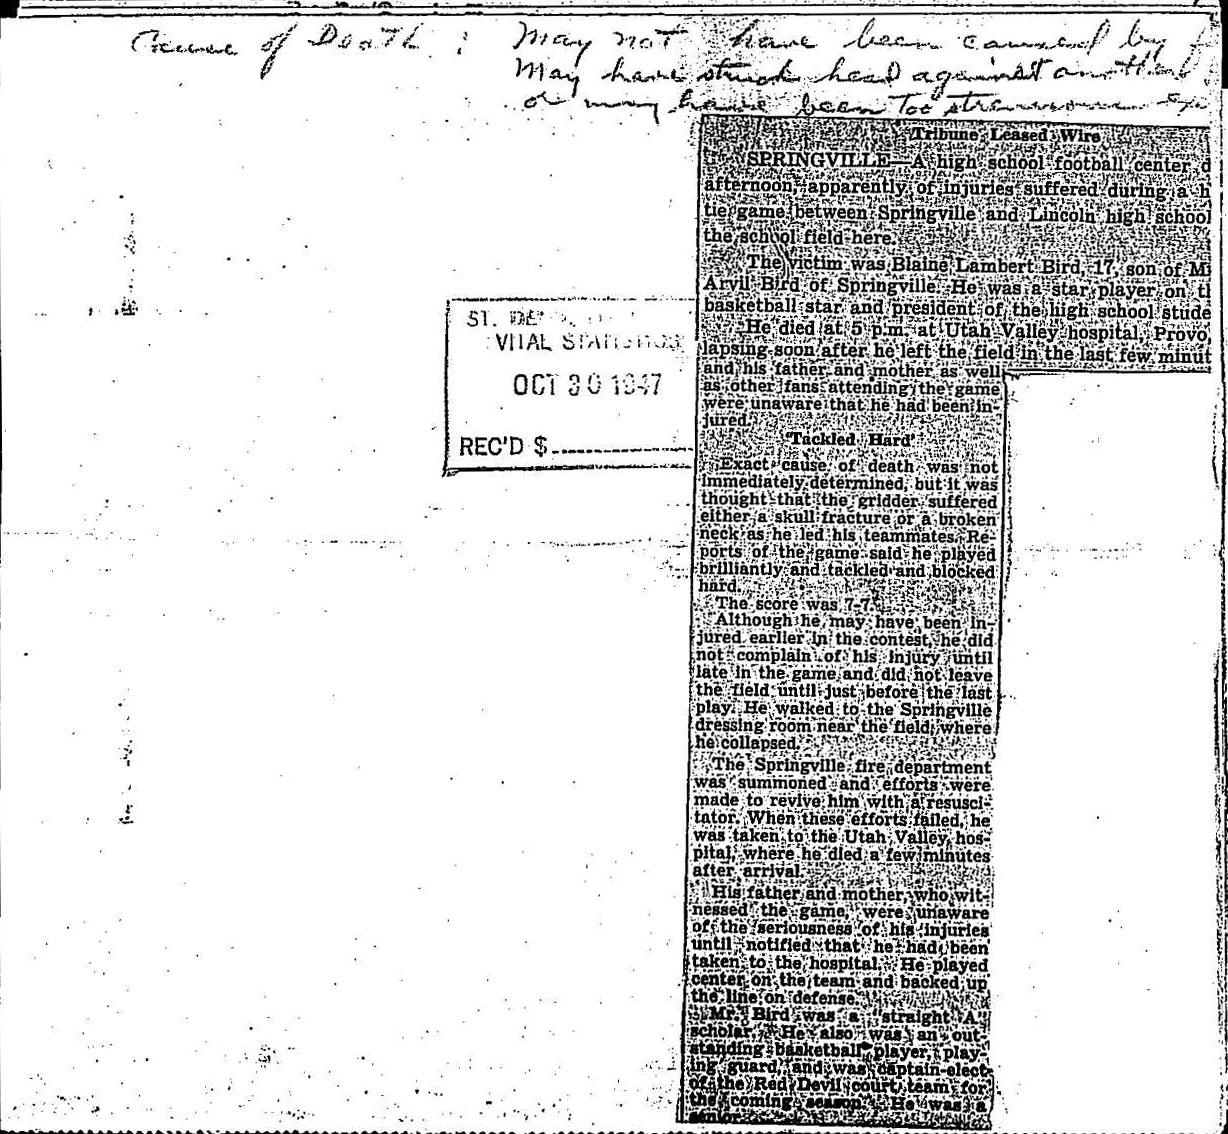 Cause of Death : May not have been caused by f
May have struck head against another
or may have been too strenuous
ST. DE
VITAL STATISTICS
OCT 30 1947
REC'D $
Tribune Leased Wire
SPRINGVILLE—A high school football center d
afternoon, apparently of injuries suffered during a h
tie game between Springville and Lincoln high school
the school field here.
The victim was Blaine Lambert Bird, 17, son of M
Arvil Bird of Springville. He was a star player on t
basketball star and president of the high school stude
He died at 5 p.m. at Utah Valley hospital, Provo,
lapsing soon after he left the field in the last few minut
and his father and mother as well
as other fans attending the game
were unaware that he had been in-
jured.
'Tackled Hard'
Exact cause of death was not
immediately determined, but it was
thought that the gridder suffered
either a skull fracture or a broken
neck as he led his teammates. Re-
ports of the game said he played
brilliantly and tackled and blocked
hard.
The score was 7-7.
Although he may have been in-
jured earlier in the contest, he did
not complain of his injury until
late in the game and did not leave
the field until just before the last
play. He walked to the Springville
dressing room near the field, where
he collapsed.
The Springville fire department
was summoned and efforts were
made to revive him with a resusci-
tator. When these efforts failed, he
was taken to the Utah Valley hos-
pital, where he died a few minutes
after arrival.
His father and mother, who wit-
nessed the game, were unaware
of the seriousness of his injuries
until notified that he had been
taken to the hospital. He played
center on the team and backed up
the line on defense.
Mr. Bird was a "straight A"
scholar. He also was an out-
standing basketball player, play-
ing guard, and was captain-elect
of the Red Devil court team for
the coming season. He was a
senior